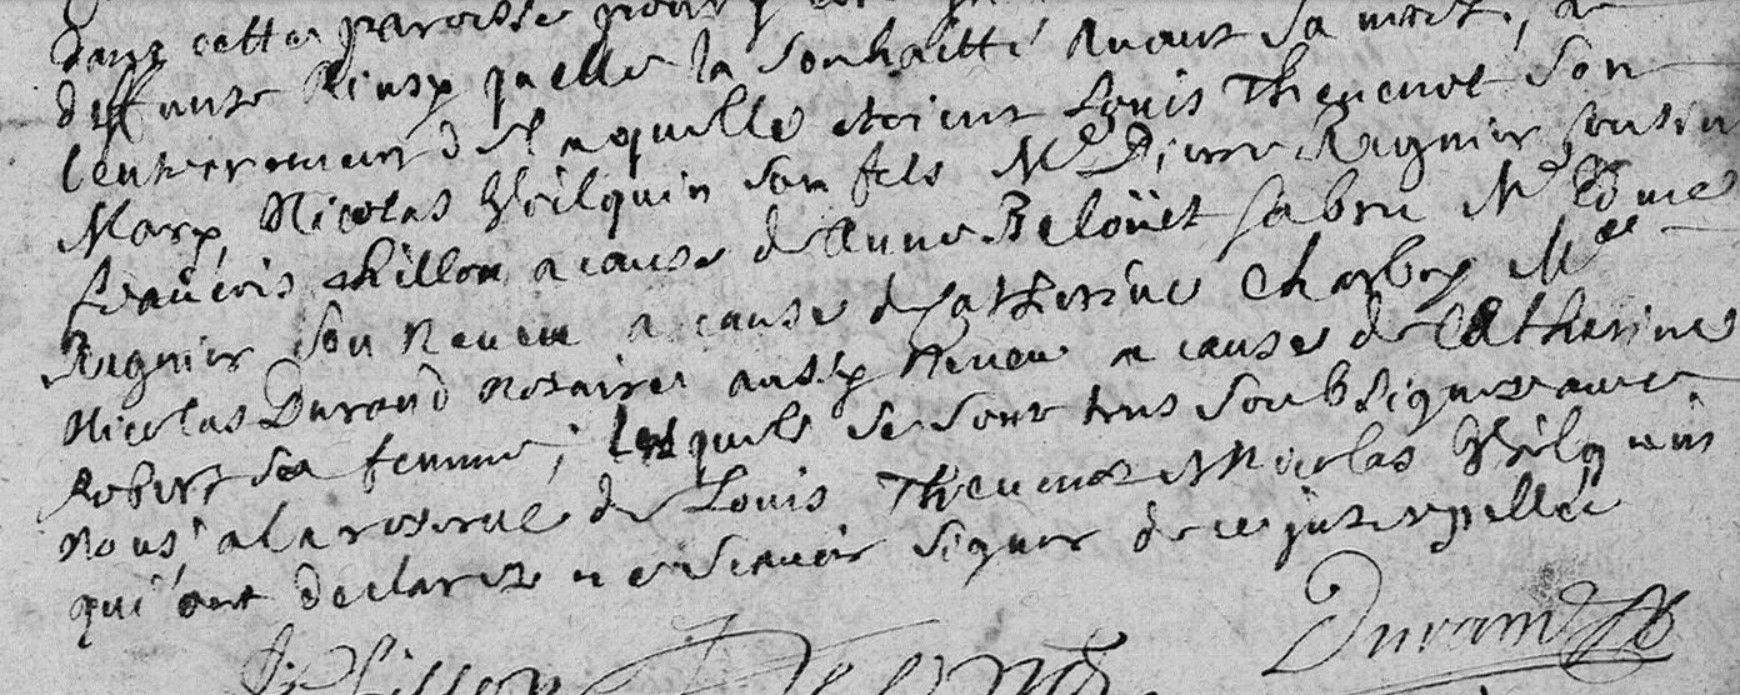 dans cette paroisse pour
deffunte Ainsy quelle la souhaitté Avant sa mort, a
lenterrement de laquelle etoient Louis Thevenot son
Mary, Nicolas Geilquin son fils Me Pierre Regnier Cousin
francois phillon a cause de Anne Beloüet sa bru Me Edme
Regnier son neveu a cause de Catherine Charbuy Me
Nicolas Durand notaire aussy neveu a cause de Catherine
Robert sa femme, lesquels se sont tous soubsignez avec
nous a la reserve de Louis Thevenot et Nicolas Geilquin
qui ont declarez ne scavoir signer de ce interpellée
Durand